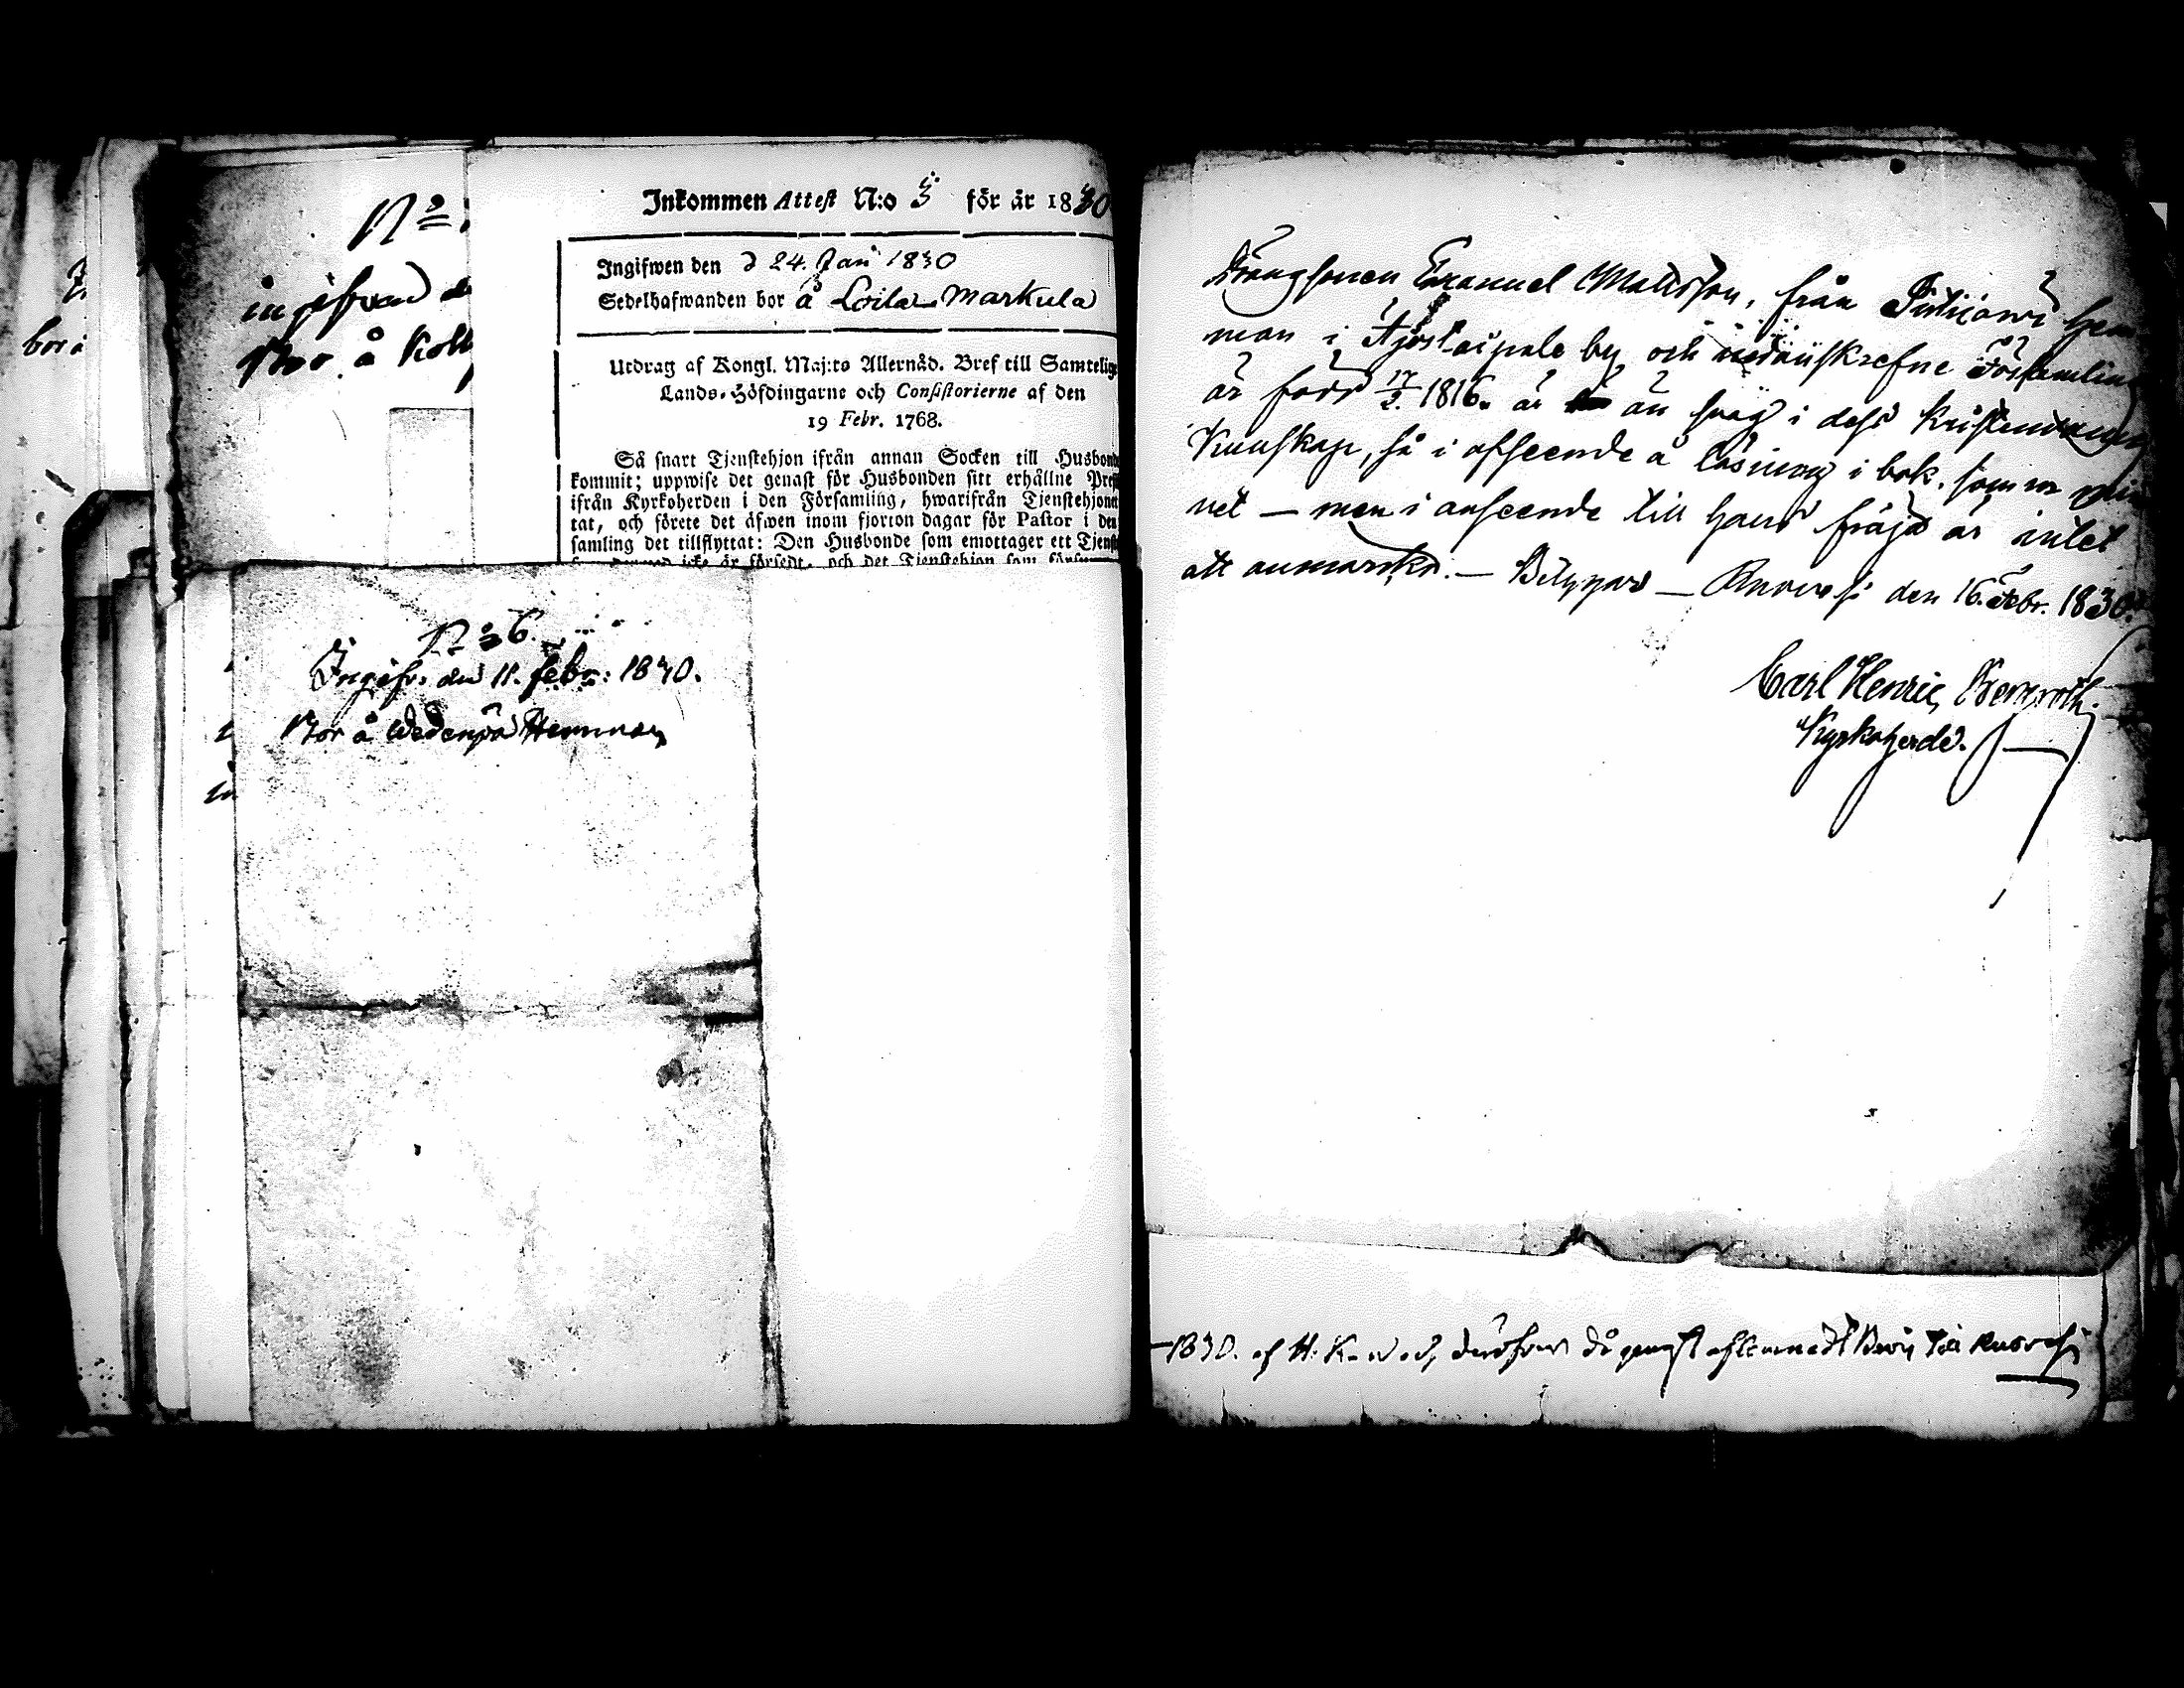 N:o
ingifwen d
Bor å Koll
bor å
Inkommen Attest N:o 5 för år 1830
Ingifwen den d 24. Jan 1830
Sedelhafwanden bor å Loila Markula
Utdrag af Kongl. Maj:ts Allernåd. Bref till Samtelige
Lands-Höfdingarne och Consistorierne af den
19 Febr. 1768.
Så snart Tjenstehjon ifrån annan Socken till Husbond
kommit; uppwise det genast för Husbonden sitt erhållne Pres
ifrån Kyrkoherden i den Församling, hwarifrån Tjenstehjone
tat, och förete det äfwen inom fjorton dagar för Pastor i den
samling det tillflyttat: Den Husbonde som emottager ett Tjenst
icke är försedt, och det Tjenstehjon som
N:o 6.
Ingifv. den 11. febr: 1830.
Bor å Wedenpä Hemman
Drängsonen Emanuel Mattsson, från hem
man i by och Församling
är född 17/2. 1816. är än svag i dess Kristendoms
Kunskap, så i afseende å läsning i bok, som in
net — men i anseende till hans fräjd är intet
att anmärka. — Betygas — Ruovesi den 16. Febr. 1830.
Carl Henric Bergroth.
Kyrkoherde.
—1830. af H. K. då genast aflemnadt Bevis till Ruovesi